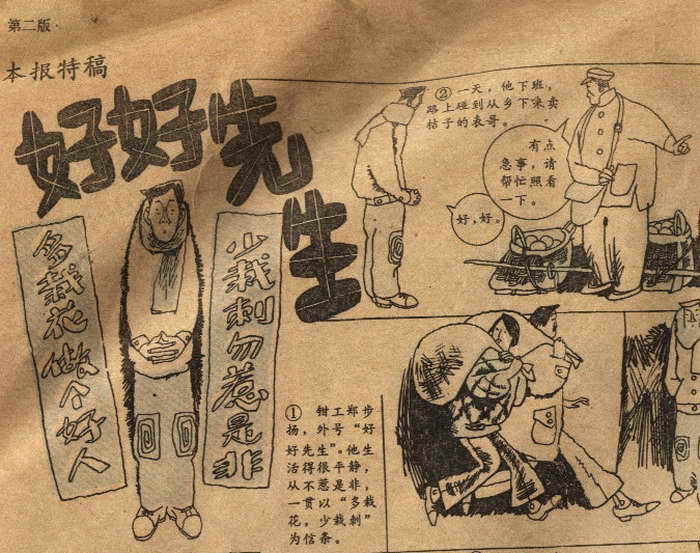 第二版
本报特稿
好好先生
多栽花做个好人
少栽刺勿惹是非
① 钳工郑步
扬，外号“好
好先生”。他生
活得很平静，
从不惹是非，
一贯以“多栽
花，少栽刺”
为信条。
② 一天，他下班，
路上碰到从乡下来卖
桔子的表哥。
有点
急事，请
帮忙照看
一下。
好，好。